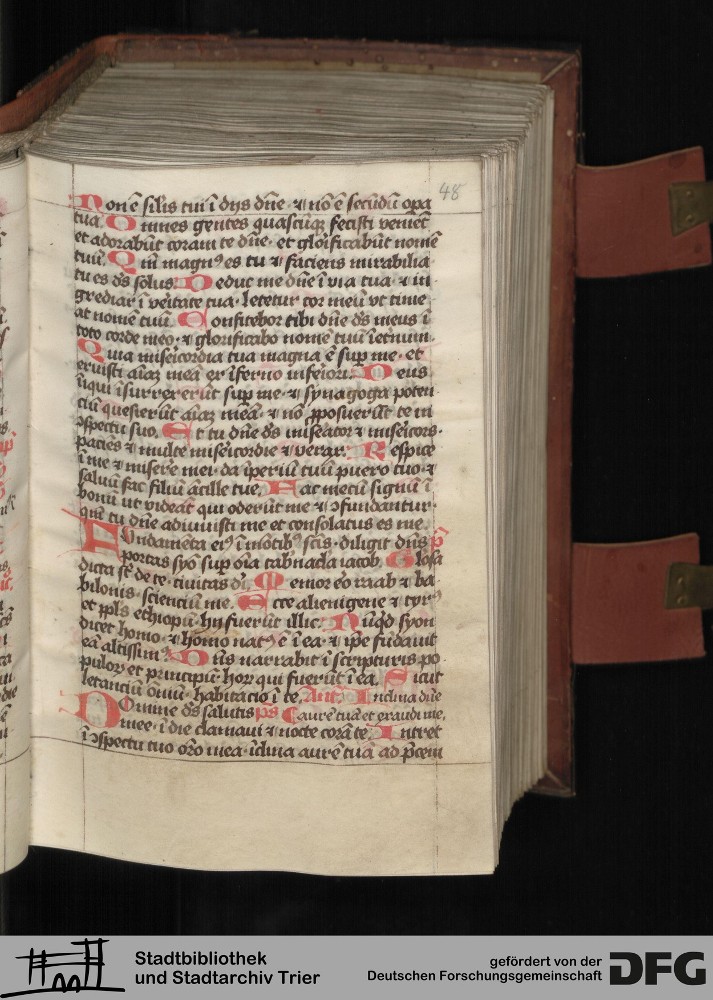 48
Non ē silis tui ī dijs dn̄e · ⁊ nō ē secūdū opa
tua. Omnes gentes quascūqꝫ fecisti veniēt
et adorabūt coram te dn̄e · et glōificabūt nomē
tuū. Qm̄ magnꝰ es tu ⁊ faciens mirabilia
tu es dꝰs solus. Deduc me dn̄e ī via tua · ⁊ in
grediar ī veītate tua · letetur cor meū vt time
at nomē tuū. Confitebor tibi dn̄e dꝰs meus ī
toto corde meo · ⁊ glorificabo nomē tuū īetnum.
Quia miseīcordia tua magna ē sup me · et
eruisti aīaꝫ meā ex īferno inferiori. Deus
iniqui īsurrexerūt sup me · ⁊ synagoga poten
ciū quesierūt aīaꝫ meā · ⁊ nō ꝓposuerūt te in
ꝯspectu suo. Et tu dn̄e dꝰs miseator ⁊ miseīcors ·
paciēs ⁊ multe miseīcordie ⁊ verax. Respice
ī me ⁊ misere mei · da īperiū tuū puero tuo · ⁊
saluū fac filiū ācille tue. Fac mecū signū ī
bonū ut videāt qui oderūt me ⁊ ꝯfundantur ·
qm̄ tu dn̄e adiuuisti me et consolatus es me.
Fundamēta eiꝰ ī mōtibꝰ scīs · diligit dn̄s p̄
portas syō sup oīa tabnacla iacob. Glosa
dicta st̄ de te · ciuitas dī. Memor eō raab ⁊ ba
bilonis · scienciū me. Ecce alienigene ⁊ tyrꝰ
et ppls ethiopū · hij fuerūt illic. Nūqd syon
dicet homo · ⁊ homo natꝰ ē ī ea · ⁊ ipe fūdauit
eā altissimꝰ. Dn̄s narrabit ī scripturis po
puloꝝ et principū · hoꝝ qui fuerūt ī ea. Sicut
letanciū om̄iū · habitacio ī te. Anꝰ. Inclina dn̄e
Domine dꝰs salutis ps̄ aurē tuā et exaudi me.
mee · ī die clamaui ⁊ nocte corā te. Intret
ī ꝯspectu tuo orō mea · īclina aurē tuā ad p̄cem
Stadtbibliothek
und Stadtarchiv Trier
gefördert von der
Deutschen Forschungsgemeinschaft
DFG